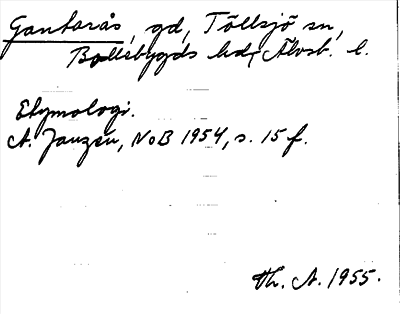 Gantarås, gd, Töllsjö sn,
Bollebygds hd, Älvsb. l.
Etymologi.
A. Janzén, NoB 1954, s. 15 f.
Th. A. 1955.